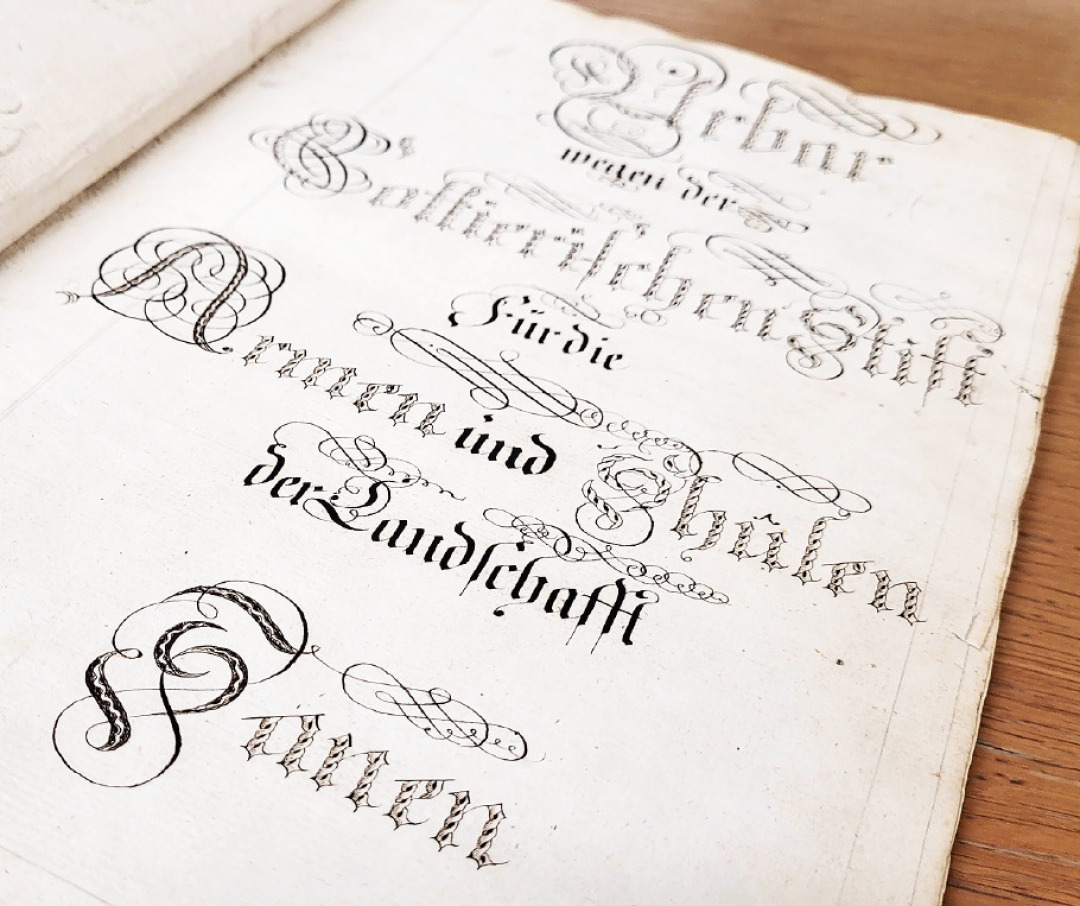 Urbar
wegen der
Cottierischen Stifft
Für die
Armen und Shulen
der Landschafft
Sanen